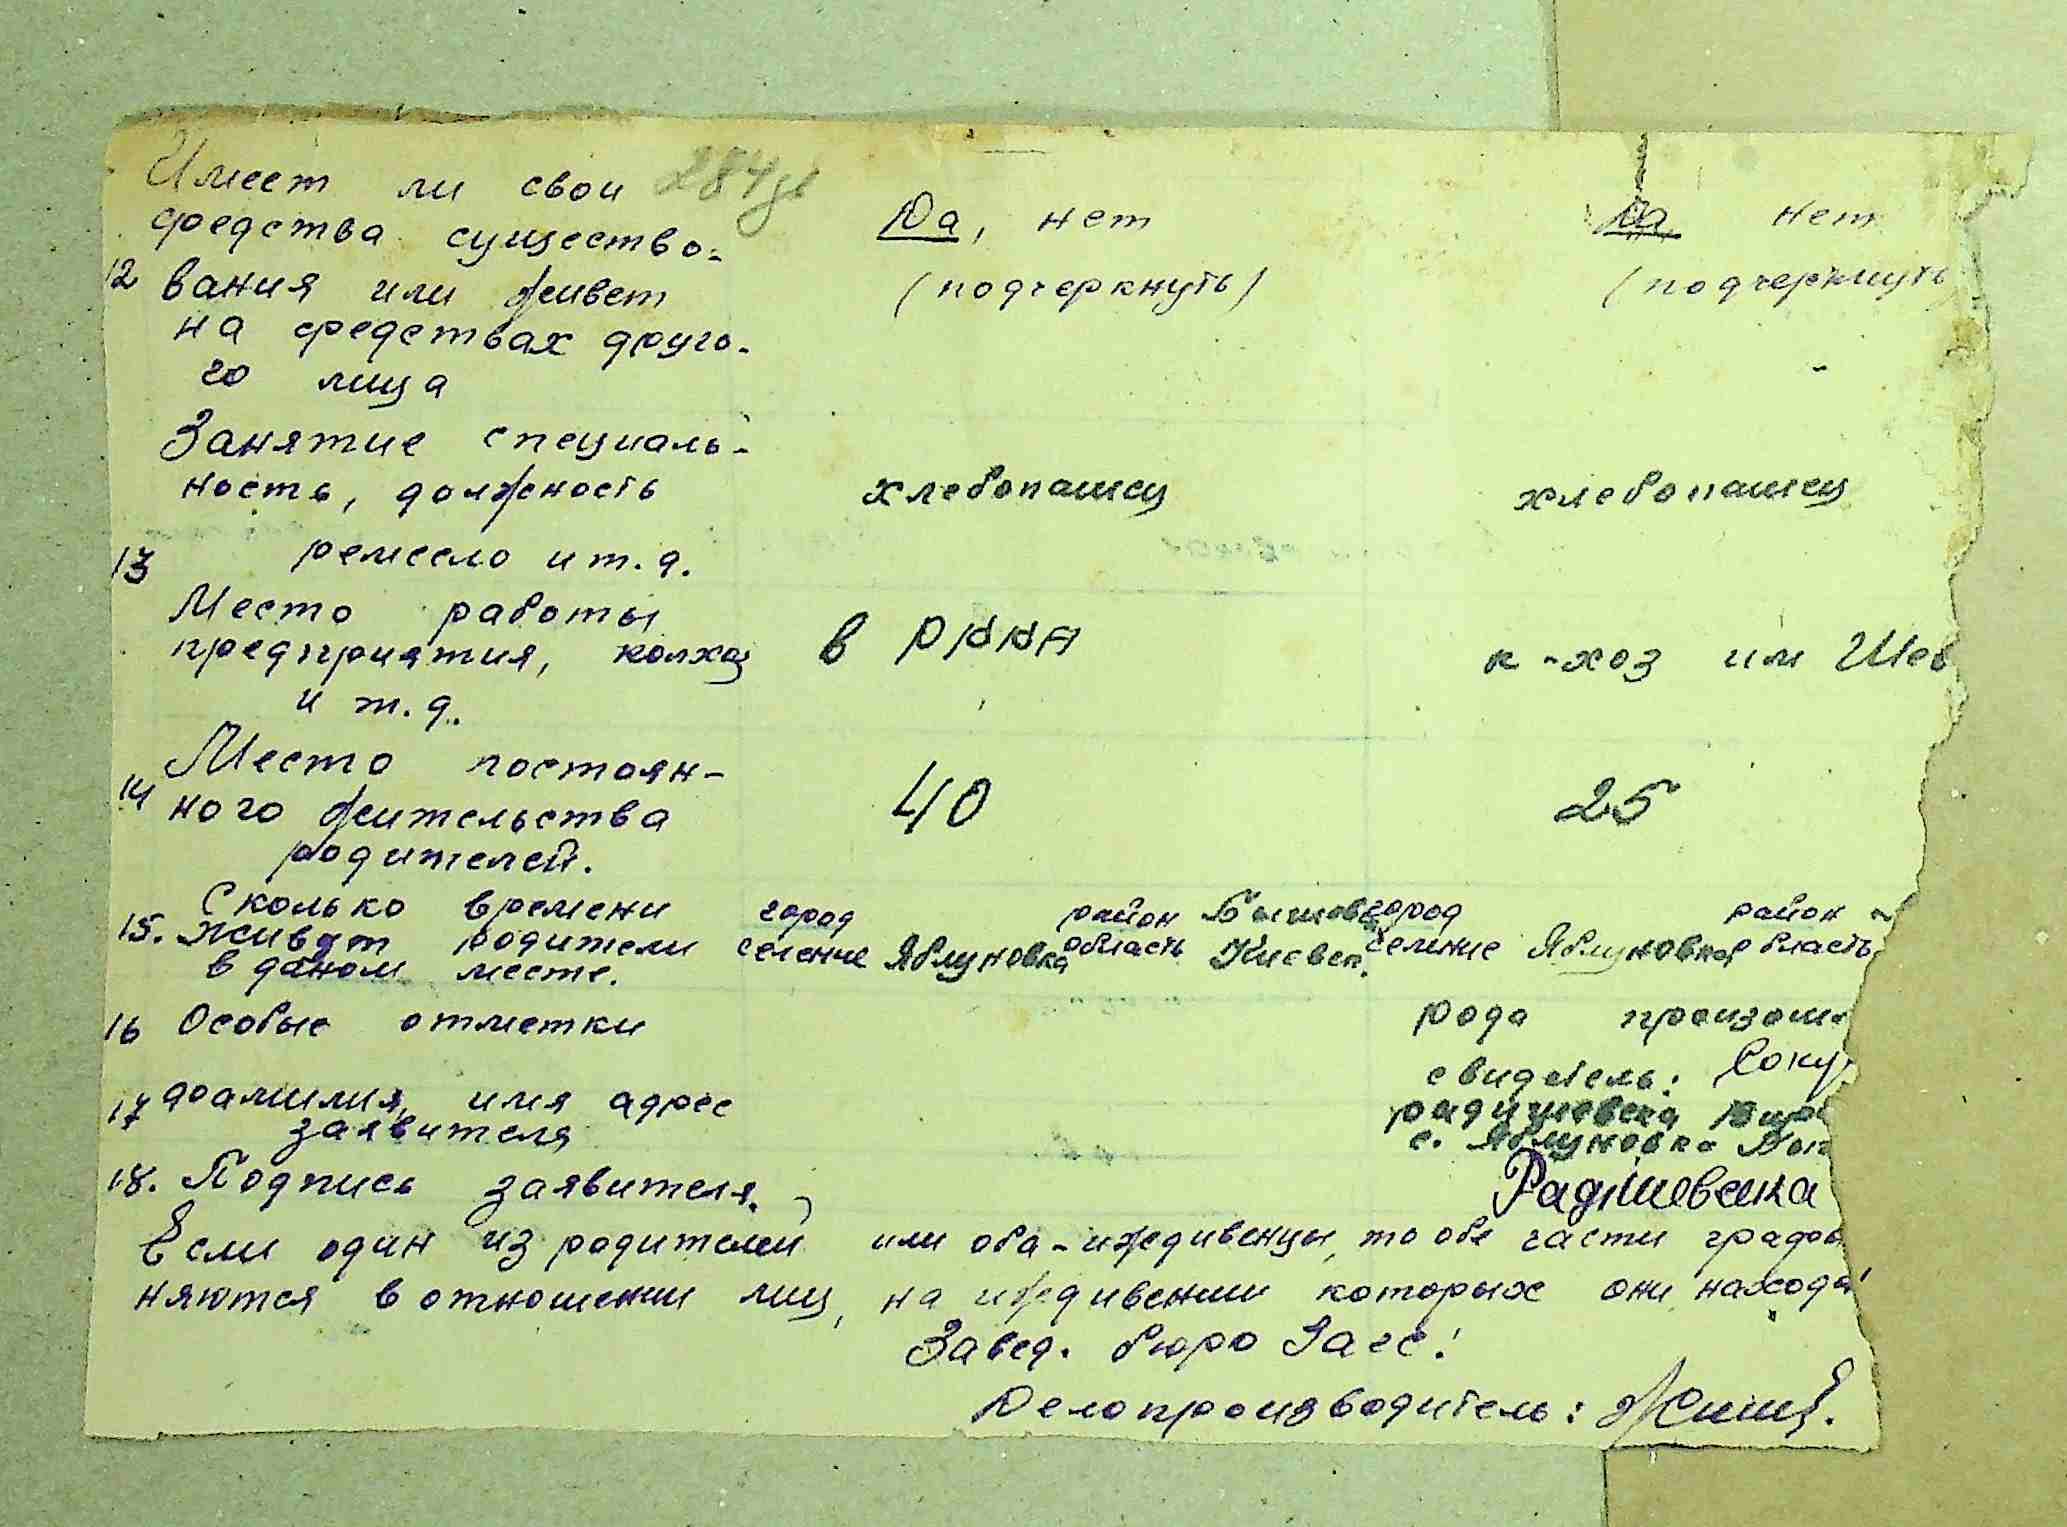 Имеет ли свои
средства существо-
12 вания или живет
на средствах друго-
го лица
Да, нет
(подчеркнуть)
Да нет
(подчеркнуть
Занятие специаль-
ность, должность
13 ремесло и т.д.
хлебопашец
хлебопашец
Место работы
предприятия, колхоз
и т.д.
в РККА
к-хоз им Шев
Место постоян-
14 ного жительства
родителей.
40
25
Сколько времени
15. живут родители
в даном месте.
город район Бышев
селение Яблуновка область Киевск.
город район
селение Яблуновка область
16 Особые отметки
рода произош
свидетель: Соку
17 фамилия, имя адрес
заявителя
с. Яблуновка
18. Подпись заявителя.
Радішевська
Если один из родителей или оба-иждивенцы, то обе части графы
няются в отношении лиц, на иждивении которых они находя
Завед. бюро Загс:
Делопроизводитель: